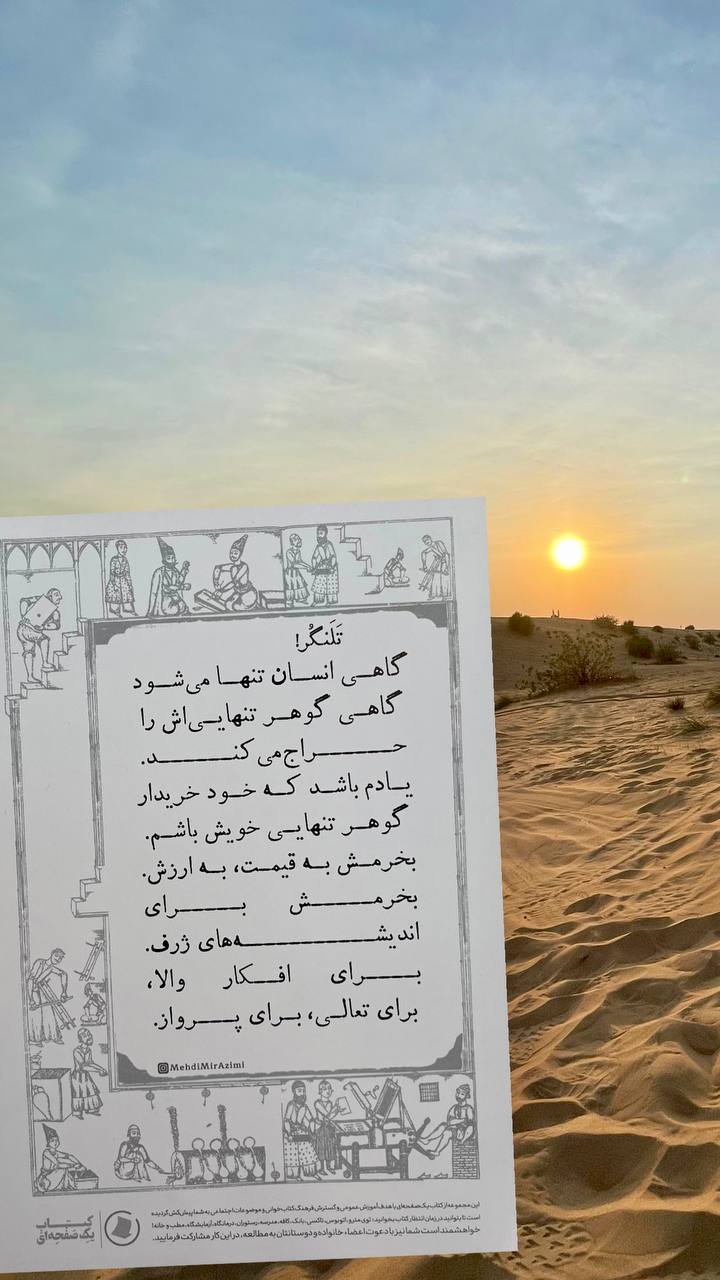 تَلَنگُر!
گاهی انسان تنها می‌شود
گاهی گوهر تنهایی‌اش را
حراج می‌کند.
یادم باشد که خود خریدار
گوهر تنهایی خویش باشم.
بخرمش به قیمت، به ارزش.
بخرمش برای
اندیشه‌های ژرف.
برای افکار والا،
برای تعالی، برای پرواز.
@MehdiMirAzimi
این مجموعه از کتاب یک صفحه‌ای با هدف آموزش عمومی و گسترش فرهنگ کتاب‌خوانی و موضوعات اجتماعی به شما پیش‌کش گردیده
است تا بتوانید در زمان انتظار کتاب بخوانید: توی مترو، اتوبوس، تاکسی، بانک، کافه، مدرسه، رستوران، درمانگاه، آزمایشگاه، مطب و خانه!
خواهشمند است شما نیز با دعوت اعضاء خانواده و دوستانتان به مطالعه، در این کار مشارکت فرمایید.
کتاب
یک صَفحِه‌ای